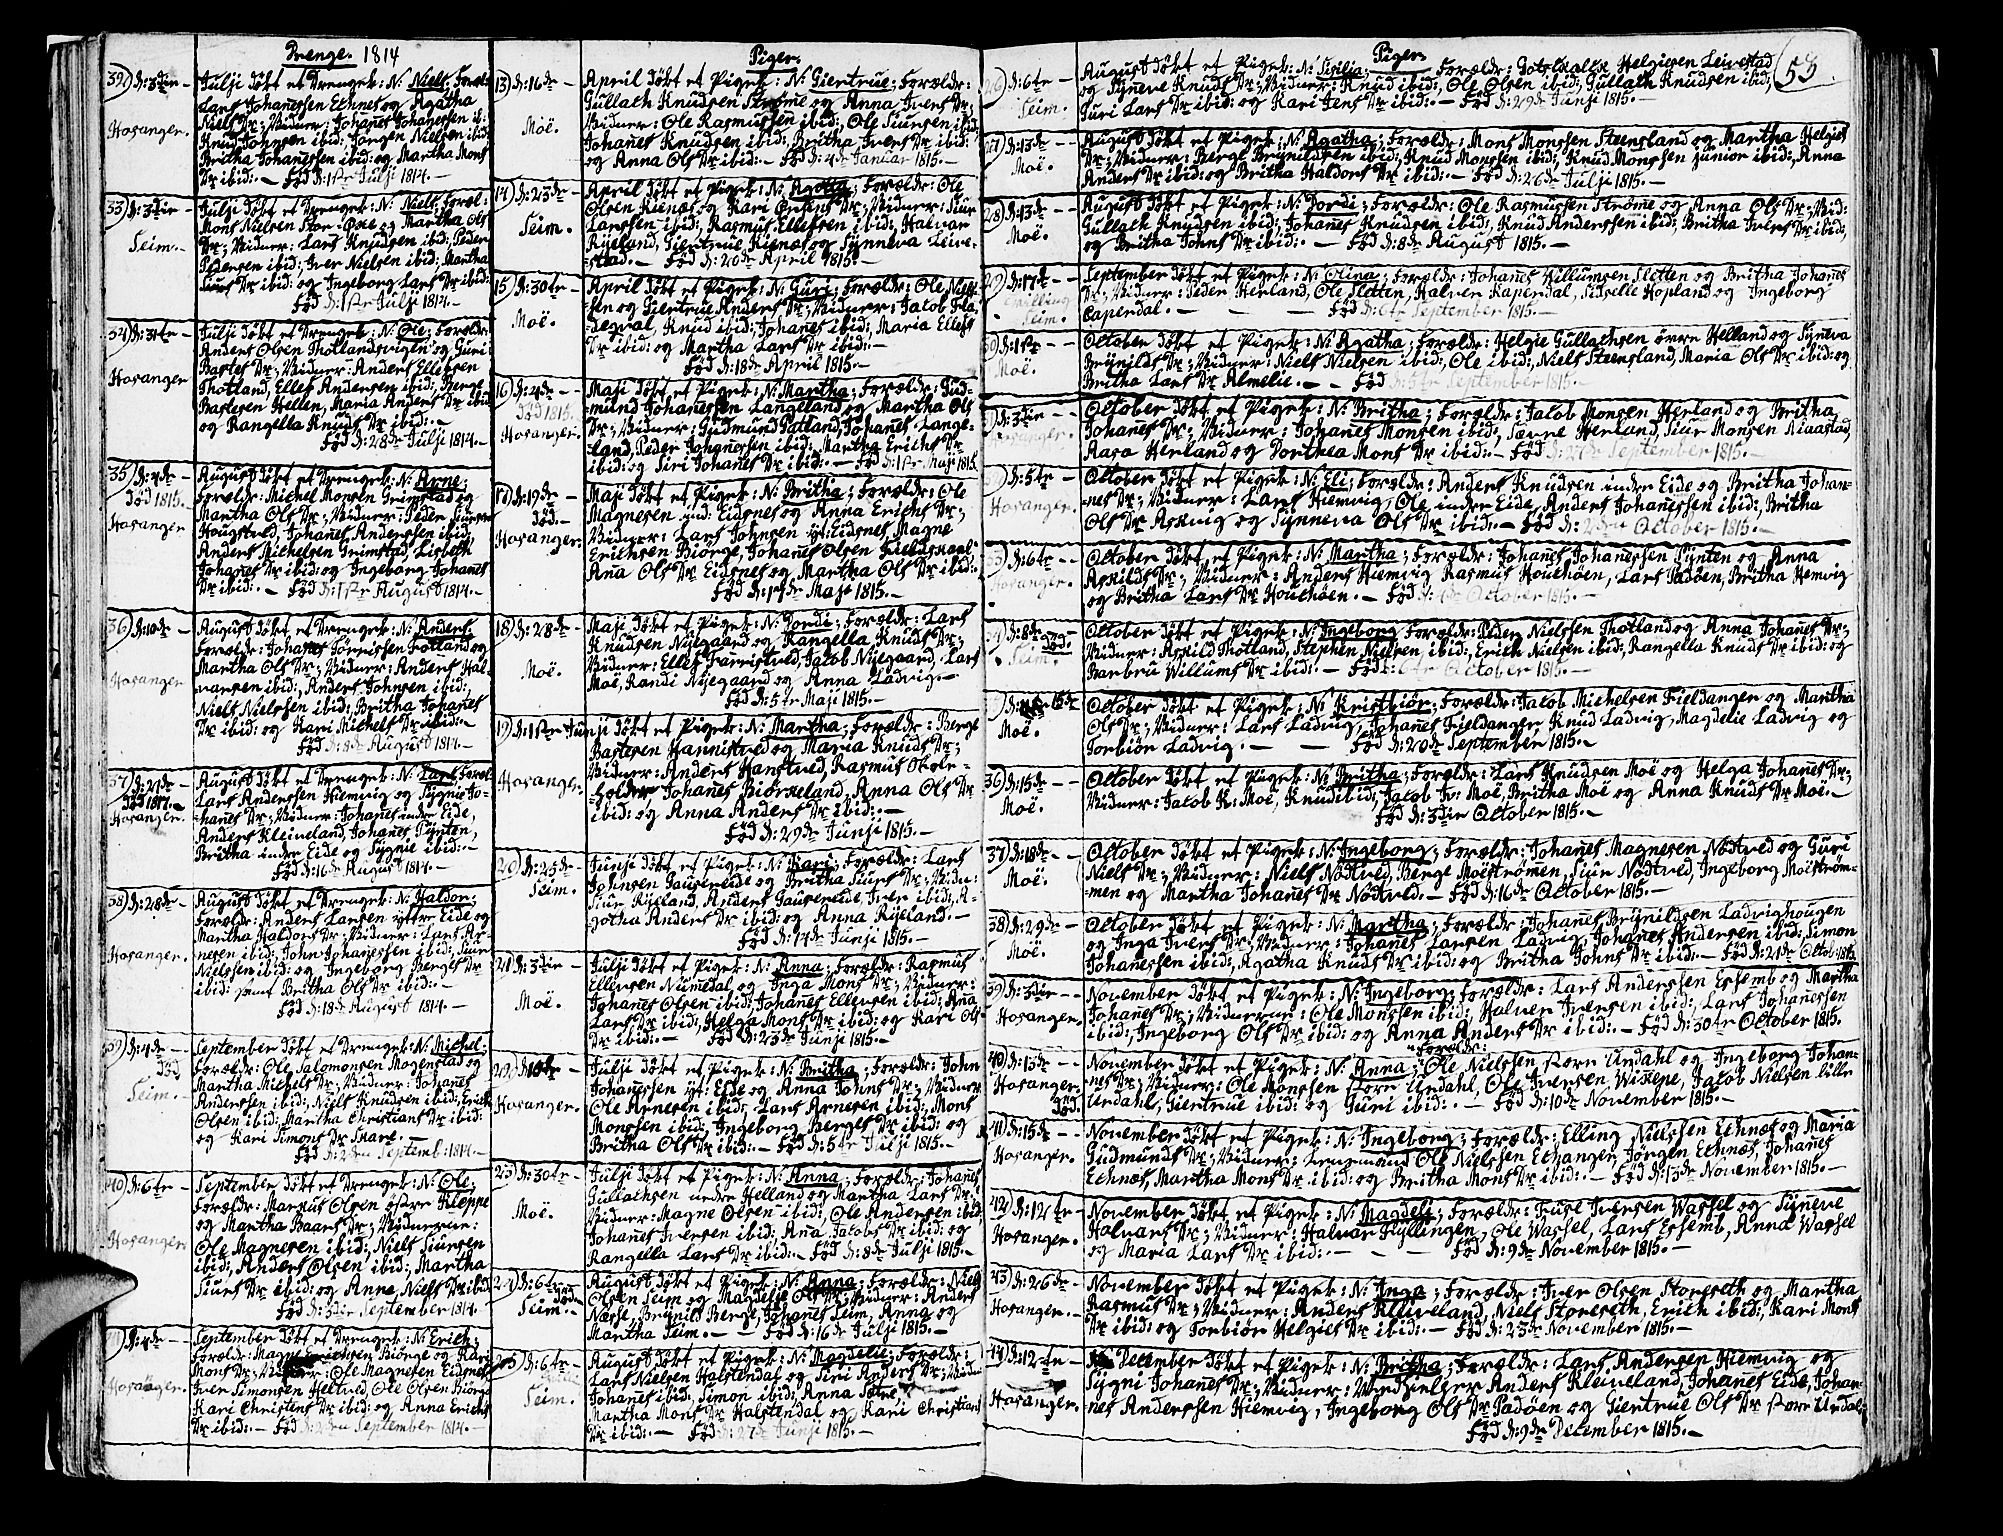 Drenge. 1814
32) d: 3die
Hosanger.
Julji døbt et Drengeb: N: Niels; Foræld:
Lars Johanessen Echnes og Agatha
Niels Dr; Vidner: Johanes Johanessen ib:
Knud Johnsen ibid; Jørgen Nielsen ibid;
Britha Johanessen ibid: og Martha Mons
Dr ibid:. — Fød d: 1ste Julji 1814. —
33) d: 3die —
Seim. —
Julji døbt et Drengeb: N: Niels; Foræl:
Mons Nielsen Stor-Øxe og Martha Ols
Dr; Vidner: Lars Knudsen ibid; Peder
Pedersen ibid; Iver Nielsen ibid; Martha
Siurs Dr ibid: og Ingeborg Lars Dr ibid.
Fød d: 1ste Julji 1814. —
34) d: 31te
Hosanger
Julji døbt et Drengeb: N: Ole; Forældr:
Anders Olsen Thotlandsvigen og Guri
Bastes Dr; Vidner: Anders Ellefsen
Thotland, Ellef Andersen ibid; Berge
Bastesen Hellen, Maria Anders Dr ibid
og Rangella Knuds Dr ibid:. —
Fød d: 28de Julji 1814. —
35) d: 7de —
død 1815.
Hosanger
August døbt et Drengeb: N: Arne;
Forældre: Michel Monsen Grimstad og
Martha Ols Dr; Vidner: Peder Siursen
Hougstved, Johanes Anderssen ibid;
Anders Michelsen Grimstad, Lisbeth
Johanes Dr ibid: og Ingeborg Johanes
Dr ibid:. — Fød d: 1ste August 1814. —
36) d: 10de —
Hosanger
August døbt et Drengeb: N: Anders;
Forældr: Johanes Tørrissen Totland og
Martha Ols Dr; Vidner: Anders Hal-
varsen ibid; Anders Johnsen ibid;
Niels Nielssen ibid; Britha Johanes
Dr ibid: og Kari Michels Dr ibid:. —
Fød d: 8de August 1814. —
37) d: 21de
død 1817. —
Hosanger.
August døbt et Drengeb: N: Lars; Foræl
Lars Anderssen Hiemvig og Sygnie Jo-
hanes Dr; Vidner: Johanes indre Eide,
Anders Kleiveland, Johanes Synten,
Britha indre Eide og Sygnie ibid:. —
Fød d: 16de August 1814. —
38) d: 28de —
Hosanger.
August døbt et Drengeb: N: Haldor;
Forældr: Anders Larsen yttre Eide og
Martha Haldors Dr; Vidner: Lars Ar-
nesen ibid; John Johanessen ibid; Siur
Nielssen ibid: og Ingeborg Berges Dr
ibid: samt Britha Ols Dr ibid:. —
Fød d: 18de August 1814. —
39) d: 4de —
død
Seim. —
September døbt et Drengeb: N: Michel;
Forældr: Ole Salomonsen Mogenstad og
Martha Michels Dr; Vidner: Johanes
Anderssen ibid; Niels Knudsen ibid; Erich
Olsen ibid; Martha Christians Dr ibid:
og Kari Simons Dr Snare. —
Fød d: 2den Septemb: 1814. —
40) d: 6te —
Hosanger
September døbt et Drengeb: N: Ole;
Forældr: Marcus Olsen østre Kleppe
og Martha Baars Dr; Vidnerne:
Ole Magnesen ibid; Niels Siursen
ibid; Anders Olsen ibid; Martha
Siurs Dr ibid: og Anna Niels Dr ibid
Fød d: 3die September 1814. —
d: 4de —
Hosanger.
September døbt et Drengeb: N: Erich;
Forældr: Magne Erichsen Biørge og Kari
Mons Dr; Vidner: Ole Magnesen Eidsnes
Iver Simonsen Heltved, Ole Olsen Biørge
Kari Christens Dr ibid: og Anna Erichs
Dr ibid:. — Fød d: 2den September 1814. —
Piger.
13) d: 16de —
Moë.
April døbt et Pigeb: N: Giertrue; Forældr:
Gullath Knudsen Strøme og Anna Ivers Dr;
Vidner: Ole Rasmussen ibid; Ole Siursen ibid;
Johanes Knudsen ibid; Britha Ivers Dr ibid;
og Anna Ols Dr ibid:. — Fød d: 4de Januar 1815. —
14) d: 23de —
Seim. —
April døbt et Pigeb: N: Agatha; Forældr: Ole
Olsen Kienæs og Kari Østens Dr; Vidner: Siur
Larssen ibid; Rasmus Ellefsen ibid; Halvar
Rijeland, Giertrue Kienæs og Synneva Leive-
stad. — Fød d: 20de April 1815. —
15) d: 30te —
Moë.
April døbt et Pigeb: N: Guri; Forældr: Ole Niels-
sen og Giertrue Anders Dr; Vidner: Jacob Fla-
degval, Knud ibid; Johanes ibid; Maria Ellefs
Dr ibid: og Martha Lars Dr ibid:. —
Fød d: 18de April 1815. —
16) d: 4de —
død 1815.
Hosanger.
Maji døbt et Pigeb: N: Martha; Forældr: Gud-
mund Johanessen Langeland og Martha Ols
Dr; Vidner: Gudmund Tatland, Johanes Lange-
land, Peder Johanessen ibid; Martha Erichs Dr
ibid: og Siri Johanes Dr ibid:. — Fød d: 1ste Maji 1815.
17) d: 19de —
død. —
Hosanger.
Maji døbt et Pigeb: N: Britha; Forældr: Ole
Magnesen ind: Eidsnes og Anna Erichs Dr;
Vidner: Lars Johnsen yt: Eidsnes, Magne
Erichsen Biørge, Johanes Olsen Fieldskaal-
Ana Ols Dr Eidsnes og Martha Ols Dr ibid:.
Fød d: 17de Maji 1815. —
18) d: 28de —
Moë.
Maji døbt et Pigeb: N: Jordi; Forældr: Lars
Knudsen Nijegaard og Rangella Knuds Dr;
Vidner: Ellef Farristved, Jacob Nijegaard, Lars
Moë, Randi Nijegaard og Anna Ladvig. —
Fød d: 5te Maji 1815. —
19) d: 1ste
Hosanger.
Junji døbt et Pigeb: N: Martha; Forældr: Berge
Bastesen Hannistved og Maria Knuds Dr;
Vidner: Anders Hanstved, Rasmus Okole-
holder, Johanes Biørkeland, Anna Ols Dr
ibid: og Anna Anders Dr ibid:. —
Fød d: 29de Junji 1815. —
20) d: 25de —
Seim.
Junji døbt et Pigeb: N: Kari; Forældr: Lars
Johnsen Gaustereide og Britha Siurs Dr; Vidn:
Siur Rijeland, Anders Gaustereide, Iver ibid; A-
gotha Anders Dr ibid: og Anna Rijeland. —
Fød d: 14de Junji 1815. —
21) d: 3die —
Moë.
Julji døbt et Pigeb: N: Anna; Forældr: Rasmus
Ellevsen Nimedal og Inga Mons Dr; Vidner:
Johanes Olsen ibid; Johanes Ellevsen ibid; Ana
Lars Dr ibid; Helga Mons Dr ibid: og Kari Ols
Dr ibid:. — Fød d: 23de Junji 1815. —
22) d: 10te —
Hosanger.
Julji døbt et Pigeb: N: Britha; Forældr: John
Johanessen yt: Eide og Anna Johns Dr; Vidner
Ole Arnesen ibid; Lars Arnesen ibid; Mons
Monssen ibid; Ingeborg Berges Dr ibid: og
Britha Ols Dr ibid:. — Fød d: 5te Julji 1815. —
23) d: 30te —
Moë.
Julji døbt et Pigeb: N: Anna; Forældr: Johanes
Gullachsen nedre Helland og Martha Lars Dr;
Vidner: Magne Olsen ibid; Ole Andersen ibid;
Johanes Iversen ibid; Ana Jacobs Dr ibid: og
Rangella Lars Dr ibid:. — Fød d: 8de Julji 1815. —
24) d: 6te —
død
Seim. —
August døbt et Pigeb: N: Anna; Forældr: Niels
Olsen Seim og Magdelie Ols Dr; Vidner: Anders
Nasse, Brynild Berge, Johanes Seim, Anna og
Martha Seim. — Fød d: 16de Julji 1815. —
25) d: 6te —
Seim.
August døbt et Pigeb: N: Magdelie; Forældr:
Lars Nielsen Halstendal og Siri Anders Dr;
Johanes ibid; Simon ibid; Anna Sætre,
Martha Mons Dr Halstendal og Kari Christians
Dr ibid:. — Fød d: 27de Junji 1815. —
Piger
53.
26) d: 6te —
Seim.
August døbt et Pigeb: N: Sisilia; Forældr: Gotskalk Helgiesen Leivestad
og Synneve Knuds Dr; Vidner: Knud ibid; Ole Olsen ibid; Gullach Knudsen ibid;
Turi Lars Dr ibid: og Kari Iens Dr ibid:. — Fød d: 29de Junji 1815. —
27) d: 13de —
Moë.
August døbt et Pigeb: N: Agatha; Forældr: Mons Monssen Steensland og Martha Helgies
Dr; Vidner: Berge Brynildsen ibid; Knud Monssen ibid; Knud Monssen junior ibid; Anna
Anders Dr ibid: og Britha Haldors Dr ibid:. — Fød d: 26de Julji 1815. —
28) d: 13de —
Moë.
August døbt et Pigeb: N: Dordi; Forældr: Ole Rasmussen Strøme og Anna Ols Dr; Vid:
Gullach Knudsen ibid; Johanes Knudsen ibid; Knud Anderssen ibid; Britha Ivers Dr ibid;
og Britha Johns Dr ibid:. — Fød d: 8de August 1815. —
29) d: 17de —
Seim.
September døbt et Pigeb: N: Olina; Forældr: Johanes Willumsen Sletten og Britha Johanes
Dr; Vidner: Peder Herland, Ole Sletten, Halver Kaperdal, Sidselle Hopland og Ingeborg
Caperdal. — — — Fød d: 6te September 1815. —
30) d: 1ste —
Moë.
October døbt et Pigeb: N: Agatha; Forældr: Helgie Gullachsen øvre Helland og Synneva
Brynilds Dr; Vidner: Niels Nielsen ibid; Ole ibid; Niels Steensland, Maria Ols Dr ibid: og
Britha Lars Dr Almelie. — Fød d: 5te September 1815. —
d: 3die —
Hosanger.
October døbt et Pigeb: N: Britha; Forældr: Jacob Monsen Herland og Britha
Johanes Dr; Vidner: Johanes Monsen ibid; Herland, Siur Monsen Niaastad,
Aasa Herland og Dorthea Mons Dr ibid:. — Fød d: September 1815. —
d: 5te —
Hosanger.
October døbt et Pigeb: N: Eli; Forældr: Anders Knudsen indre Eide og Britha Johan-
nes Dr; Vidner: Lars Hiemvig, Ole indre Eide, Anders Johanessen ibid; Britha
Ols Dr Askvig og Synneva Ols Dr ibid:. — Fød d: 2den October 1815. —
d: 6te —
Hosanger.
October døbt et Pigeb: N: Martha; Forældr: Johanes Johanessen Synten og Anna
Askilds Dr; Vidner: Anders Hiemvig, Rasmus Houghøen, Lars Padøen, Britha Hemvig
og Britha Lars Dr Houghøen. — Fød d: October 1815. —
d: 8de —
død
Seim.
October døbt et Pigeb: N: Ingeborg; Forældr: Peder Nielssen Thotland og Anna Johanes Dr;
Vidner: Askild Thotland, Stephen Nielsen ibid; Erich Nielsen ibid; Rangella Knuds Dr ibid: og
Barbru Willums Dr ibid:. — Fød d: 6te October 1815. —
d: 15de
Moë.
October døbt et Pigeb: N: Kristbiør; Forældr: Jacob Michelsen Fieldanger og Martha
Ols Dr; Vidner: Lars Ladvig, Johanes Fieldanger, Knud Ladvig, Magdelie Ladvig og
Torbiør Ladvig. — — Fød d: 20de September 1815. —
36) d: 15de —
Moë.
October døbt et Pigeb: N: Britha; Forældr: Lars Knudsen Moë og Helga Johanes Dr;
Vidner: Jacob K: Moë, Knud ibid; Jacob Iv: Moë, Britha Moë og Anna Knuds Dr Moë. —
Fød d: 3die October 1815. —
37) d: 18de —
Moë.
October døbt et Pigeb: N: Ingeborg; Forældr: Johanes Magnesen Nødtved og Guri
Niels Dr; Vidner: Niels Nødtved, Berge Moëstrømen, Siur Nødtved, Ingeborg Moëstrøm-
men og Martha Johanes Dr Nødtved. — Fød d: 16de October 1815. —
38) d: 29de —
Moë.
October døbt et Pigeb: N: Martha; Forældr: Johanes Brynildsen Ladvighougen
og Inga Ivers Dr; Vidner: Johanes Larsen Ladvig, Johanes Andersen ibid; Simon
Johanessen ibid; Agatha Knuds Dr ibid: og Britha Johns Dr ibid:. — Fød d: 21de Octob: 1815.
39) d: 3die —
Hosanger.
November døbt et Pigeb: N: Ingeborg; Forældr: Lars Anderssen Essemb og Martha
Johanes Dr; Vidnerne: Ole Monssen ibid; Halver Iversen ibid; Lars Johanessen
ibid; Ingeborg Ols Dr ibid: og Anna Anders Dr ibid:. — Fød d: 30te October 1815.
40) d: 13de —
Hosanger.
død.
Forældr:
November døbt et Pigeb: N: Anna; Ole Nielssen store Urdahl og Ingeborg Johan-
nes Dr; Vidner: Ole Monssen store Urdahl, Ole Iversen Wikepe, Jacob Nielsen lille
Urdahl, Giertrue ibid: og Guri ibid:. — Fød d: 10de November 1815. —
41) d: 15de —
Hosanger.
November døbt et Pigeb: N: Ingeborg; Forældr: Elling Nielssen Echnæs og Maria
Gudmunds Dr; Vidner: Lensmand Ole Nielssen Echanger, Jørgen Echnæs, Johanes
Echnæs, Martha Mons Dr ibid: og Britha Mons Dr ibid:. — Fød d: 13de November 1815. —
42) d: 12te —
Hosanger.
November døbt et Pigeb: N: Magdeli; Forældr: Iversen Wassel og Synneve
Halvars Dr; Vidner: Halvar Fyllingen, Ole Wassel, Lars Essemb, Anna Wassel
og Maria Lars Dr ibid:. — — Fød d: 9de November 1815. —
43) d: 26de —
Hosanger.
November døbt et Pigeb: N: Inga; Forældr: Iver Olsen Storseth og Martha
Rasmus Dr; Vidner: Anders Kleiveland, Niels Storseth, Erich ibid; Kari Mons
Dr ibid: og Torbiør Helgies Dr ibid:. — Fød d: 23de November 1815. —
44) d: 12te —
Hosanger.
December døbt et Pigeb: N: Britha; Forældr: Lars Andersen Hiemvig og
Sygni Johanes Dr; Vidner: Anders Kleiveland, Johanes Eide, Johan-
nes Anderssen Hiemvig, Ingeborg Ols Dr Padøen og Giertrue Ols Dr store Urdal.
Fød d: 9de December 1815. —